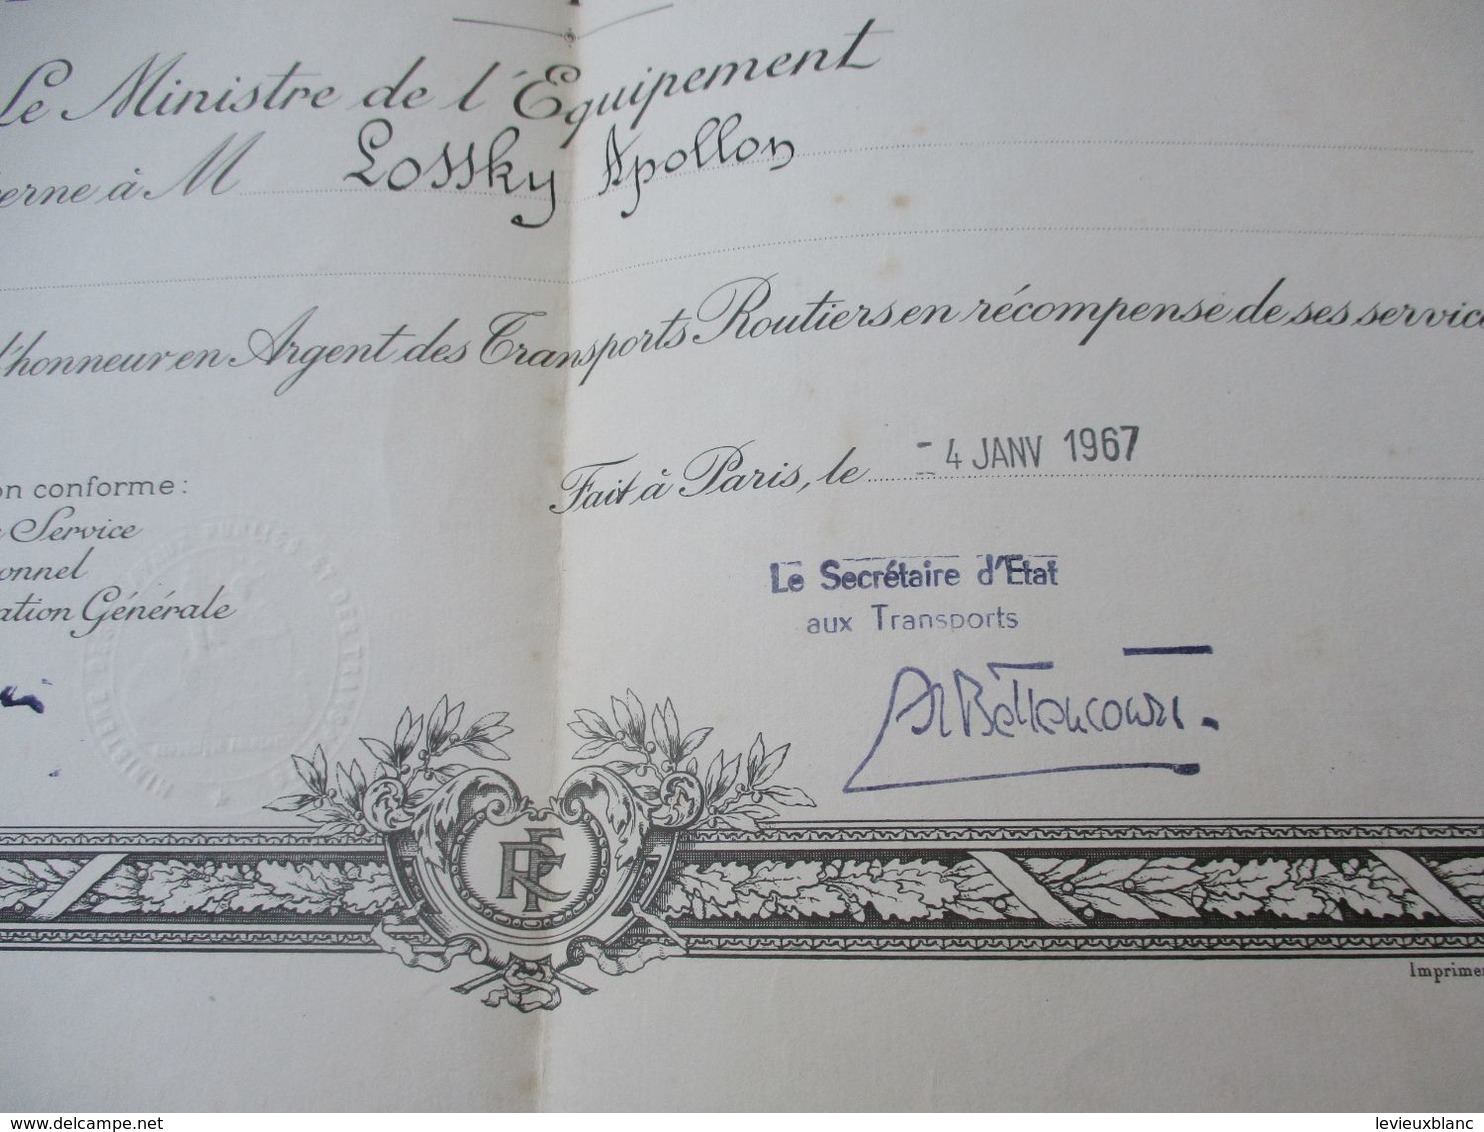 Le Ministre de l'Equipement
erne à M Lossky Apollon
l'honneur en Argent des Transports Routiers en récompense de ses servic
on conforme :
Fait à Paris, le - 4 JANV 1967
Service
onnel
ation Générale
Le Secrétaire d'Etat
aux Transports
ABettencourt.
RF
Imprime
delcampe.net
levieuxblanc